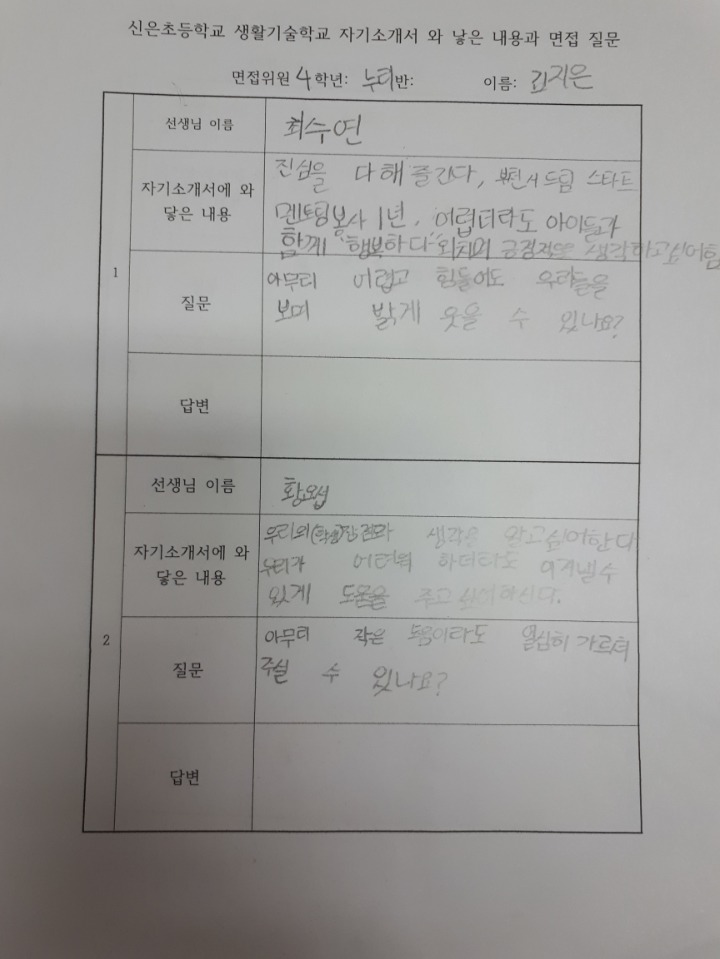 신은초등학교 생활기술학교 자기소개서 와 낳은 내용과 면접 질문
면접위원 4학년: 누리반: 이름: 김지은
1
선생님 이름
최수연
자기소개서에 와
닿은 내용
진심을 다해 즐긴다, 부천시 드림 스타트
멘토링봉사 1년, 어렵더라도 아이들과
함께 "행복하다" 외치며 긍정적으로 생각하고싶어함
질문
아무리 어렵고 힘들어도 우리들을
보며 밝게 웃을 수 있나요?
답변
2
선생님 이름
자기소개서에 와
닿은 내용
우리의(학생) 생각을 알고싶어한다
우리가 어려워 하더라도 이겨낼수
있게 도움을 주고 싶어하신다.
질문
아무리 작은 도움이라도 열심히 가르쳐
주실 수 있나요?
답변